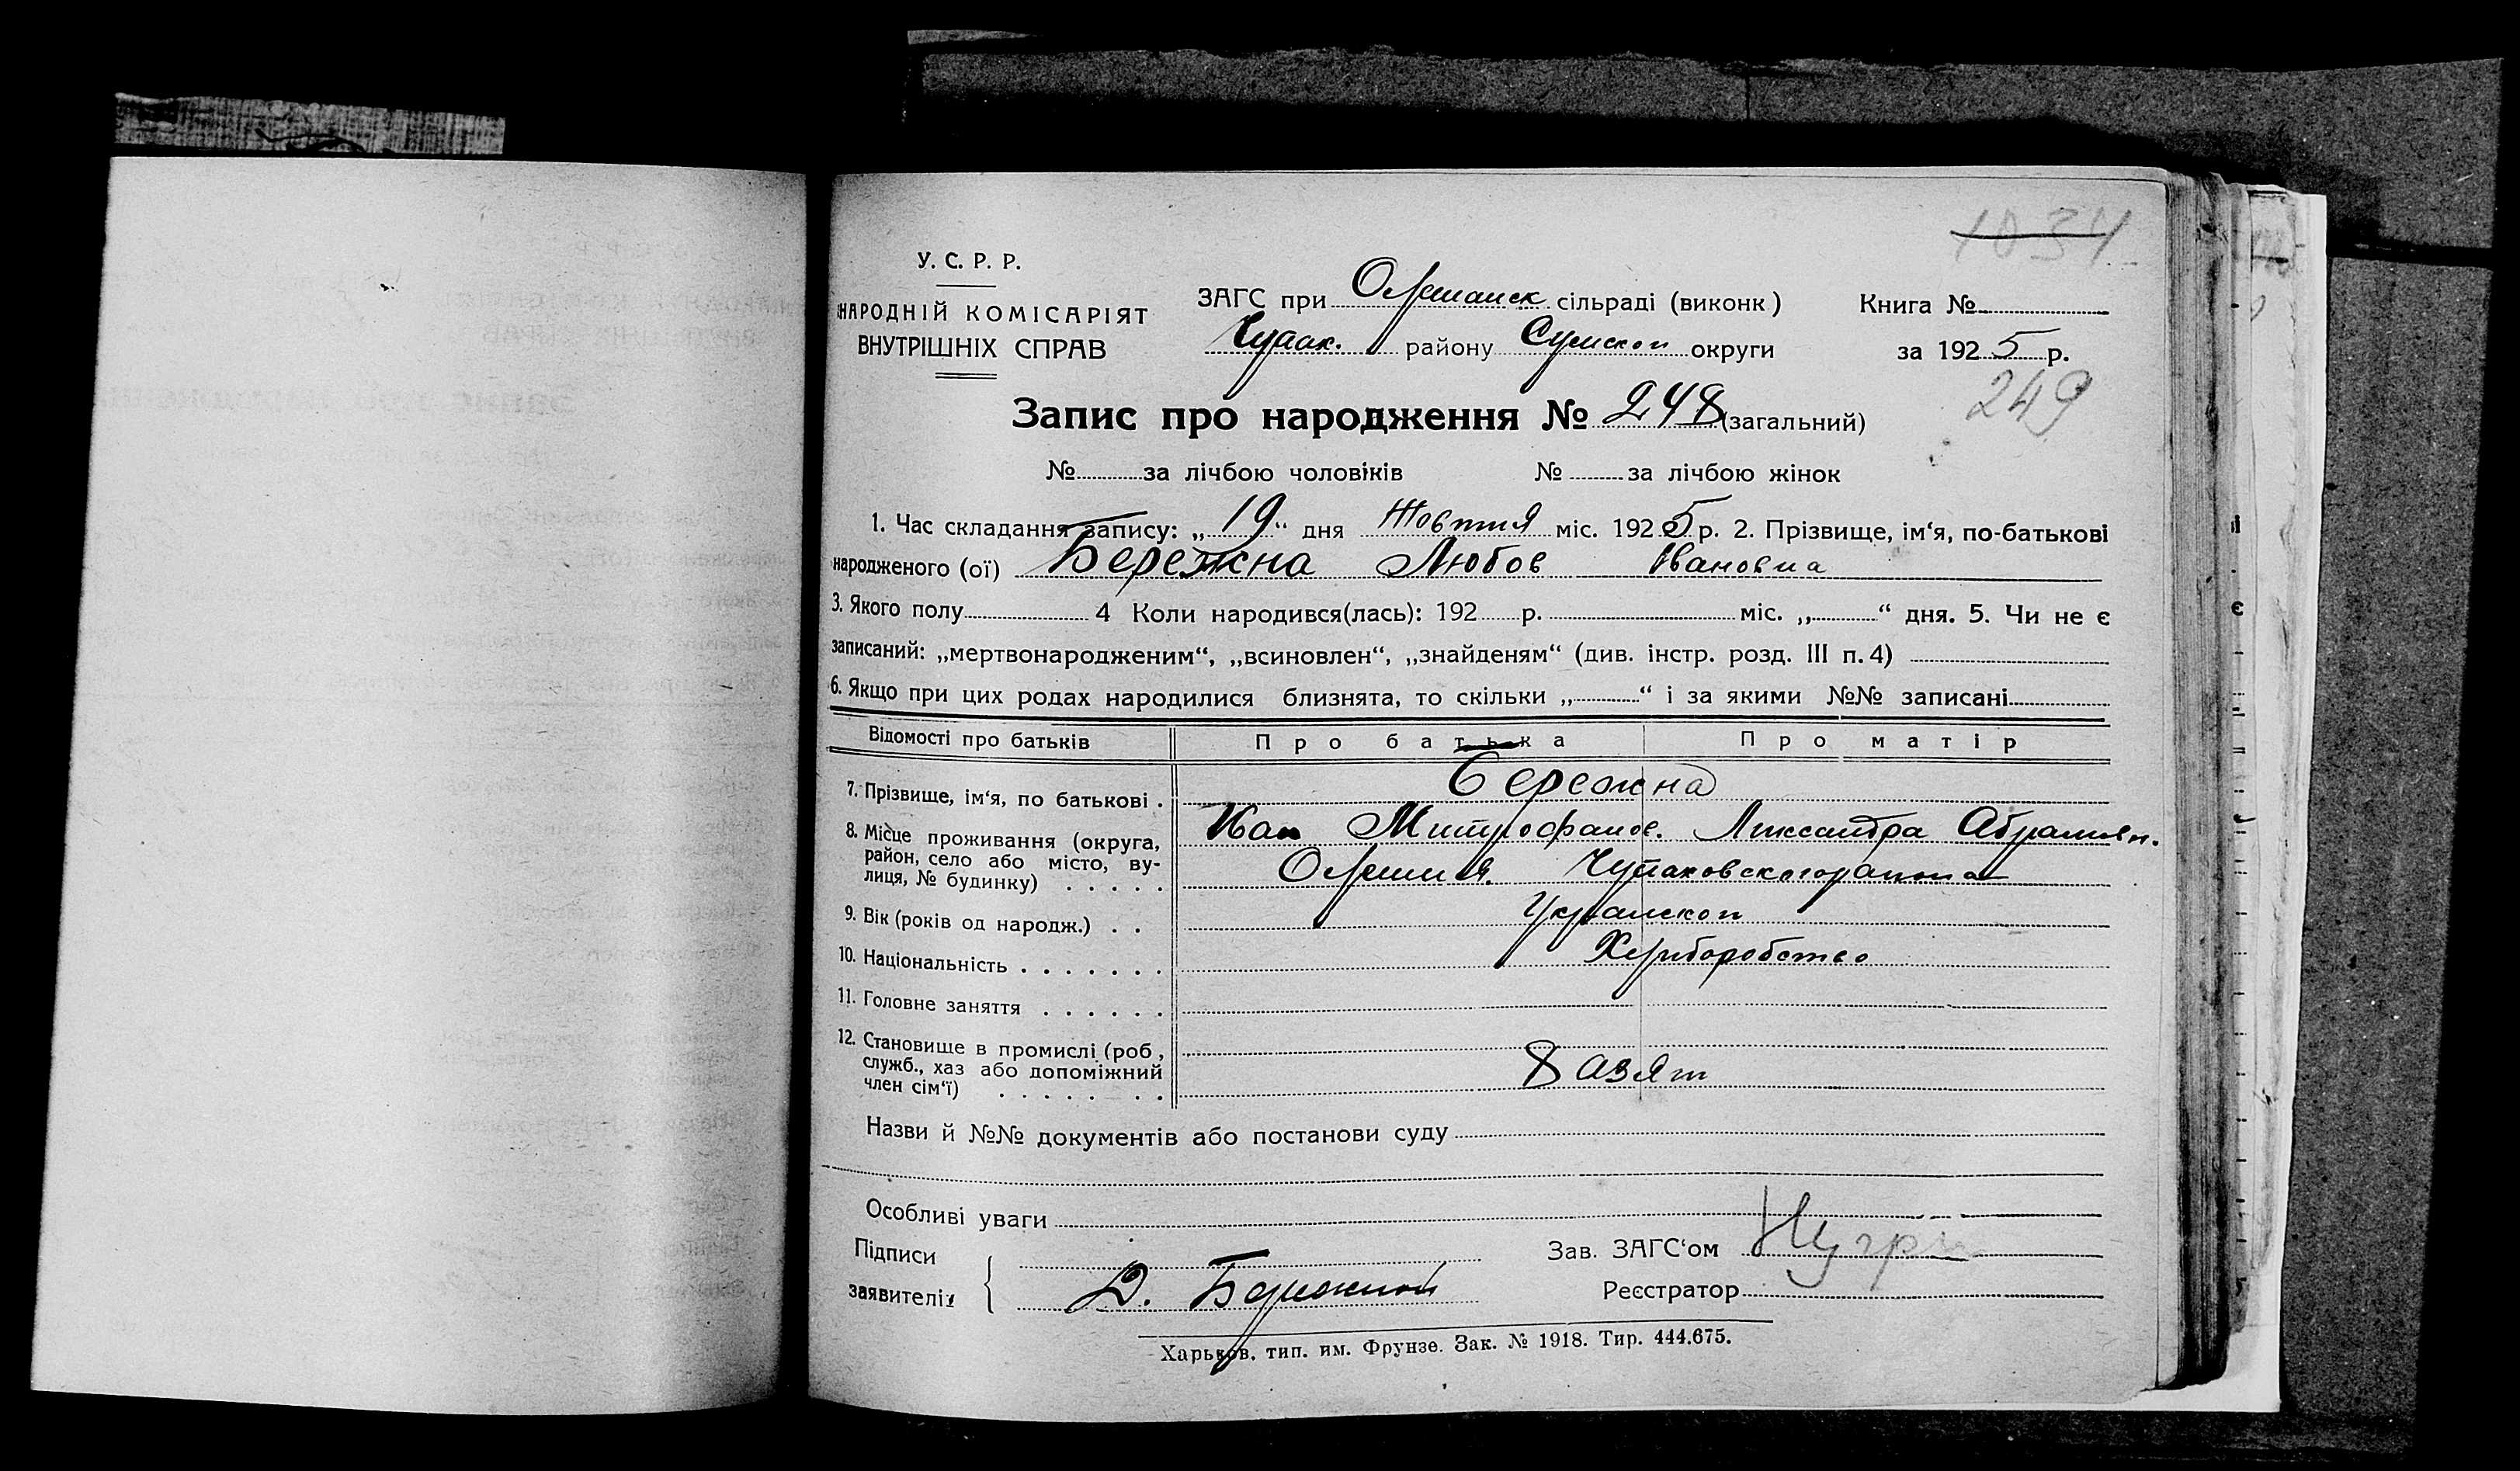 1034
У. С. Р. Р.
НАРОДНІЙ КОМІСАРІЯТ
ВНУТРІШНІХ СПРАВ
ЗАГС при сільраді (виконк)
Книга №
Чупах. району Сумской округи
за 1925 р.
249
Запис про народження № 248 (загальний)
№ за лічбою чоловіків № за лічбою жінок
1. Час складання запису: „19“ дня Жовтня міс. 1925 р. 2. Прізвище, ім‘я, по-батькові
народженого (ої) Бережна Любов Івановна
3. Якого полу 4 Коли народився(лась): 192 р. міс. „ “ дня. 5. Чи не є
записаний: „мертвонародженим“, „всиновлен“, „знайденям“ (див. інстр. розд. III п. 4)
6. Якщо при цих родах народилися близнята, то скільки „ “ і за якими №№ записані
Відомості про батьків Про батька Про матір
7. Прізвище, ім‘я, по батькові . Бережна
8. Місце проживання (округа, район, село або місто, вулиця, № будинку) . . . . . Иван Митрофанов. Александра Абрамовн.
Чупаховского района
9. Вік (років од народж.) . .
10. Національність . . . . . . . Хлиборобство
11. Головне заняття . . . . . .
12. Становище в промислі (роб,
служб., хаз або допоміжний
член сім‘ї) . . . . . . .
Назви й №№ документів або постанови суду
Особливі уваги
Підписи
заявителів
Д. Бережной
Зав. ЗАГС‘ом
Реєстратор
Харьков. тип. им. Фрунзе. Зак. № 1918. Тир. 444.675.